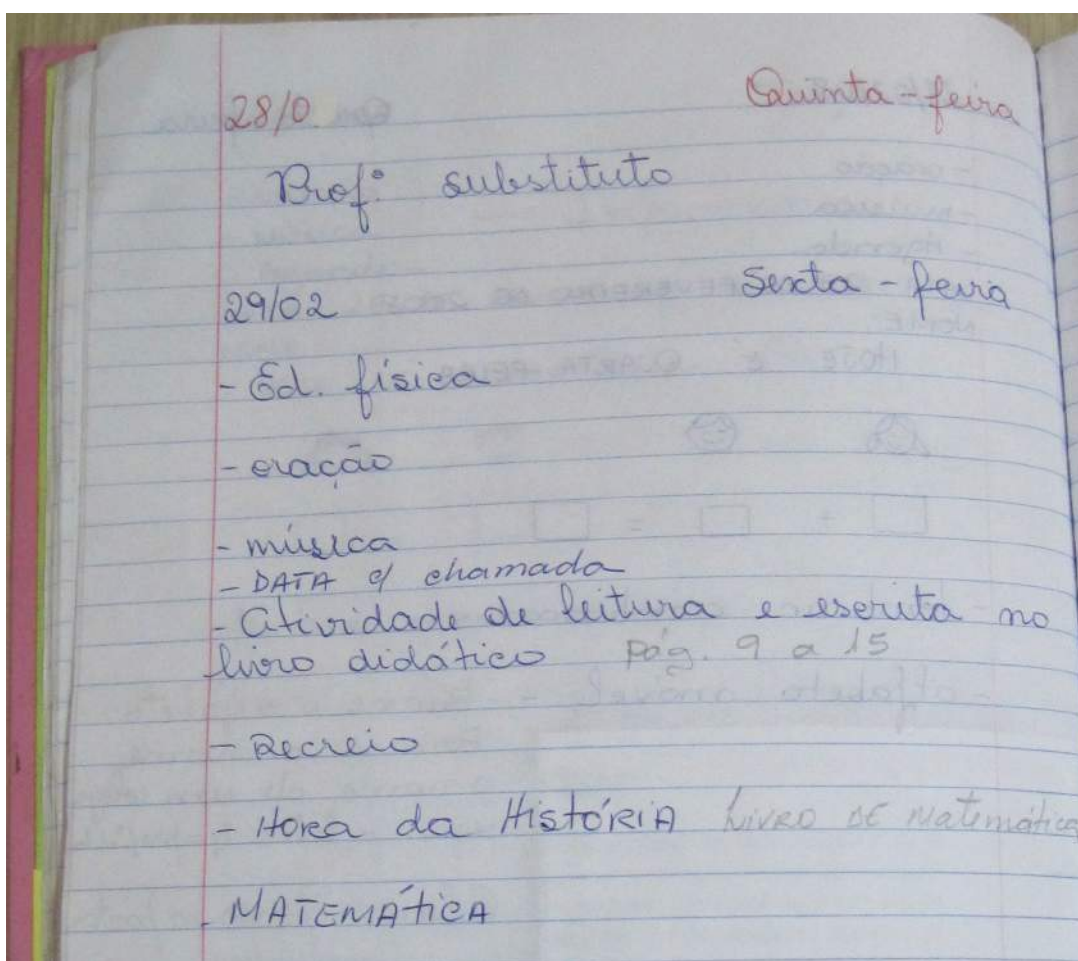 28/0 Quinta-feira
Prof: substituto
29/02 Sexta-feira
- Ed. física
- oração
- música
- DATA c/ chamada
- Atividade de leitura e escrita no
livro didático pág. 9 a 15
- Recreio
- Hora da HistóRiA LivRO DE Matemática
- MATEMÁTiCA